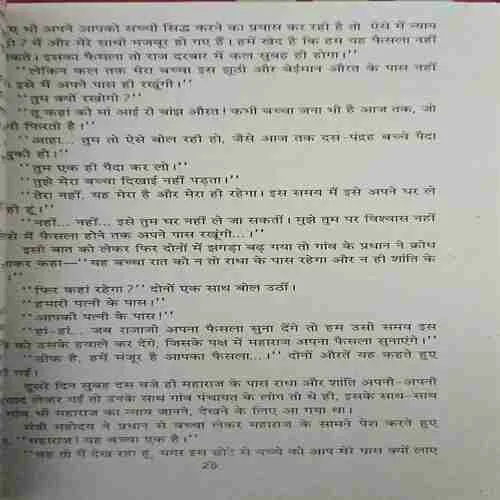 ए भी अपने आपको सच्ची सिद्ध करने का प्रयास कर रही है तो ऐसे में न्याय
? मैं और मेरे साथी मजबूर हो गए हैं। हमें खेद है कि हम यह फैसला नहीं
इसका फैसला तो राज दरबार में कल सुबह ही होगा।''
''लेकिन कल तक मेरा बच्चा इस झूठी और बेईमान औरत के पास नहीं
इसे मैं अपने पास ही रखूंगी।''
''तुम क्यों रखोगी?''
''तू कहां की मां आई रो बांझ औरत! कभी बच्चा जना भी है आज तक, जो
फिरती है।''
''आहा... तुम तो ऐसे बोल रही हो, जैसे आज तक दस-पंद्रह बच्चे पैदा
चुकी हो।''
''तुम एक ही पैदा कर लो।''
''तुझे मेरा बच्चा दिखाई नहीं पड़ता।''
''तेरा नहीं, यह मेरा है और मेरा ही रहेगा। इस समय मैं इसे अपने घर ले
हूं।''
''नहीं... नहीं... इसे तुम घर नहीं ले जा सकतीं। मुझे तुम पर विश्वास नहीं
मैं फैसला होने तक अपने पास रखूंगी...।''
इसी बात को लेकर फिर दोनों में झगड़ा बढ़ गया तो गांव के प्रधान ने क्रोध
कहा—''यह बच्चा रात को न तो राधा के पास रहेगा और न ही शांति के
।''
''फिर कहां रहेगा?'' दोनों एक साथ बोल उठीं।
''हमारी पत्नी के पास।''
''आपकी पत्नी के पास!''
''हां-हां... जब राजाजी अपना फैसला सुना देंगे तो हम उसी समय इस
को उसके हवाले कर देंगे, जिसके पक्ष में महाराज अपना फैसला सुनाएंगे।''
''ठीक है, हमें मंजूर है आपका फैसला...।'' दोनों औरतें यह कहते हुए
गईं।
दूसरे दिन सुबह दस बजे ही महाराज के पास राधा और शांति अपनी-अपनी
लेकर गईं तो उनके साथ गांव पंचायत के लोग तो थे ही, इसके साथ-साथ
गांव भी महाराज का न्याय जानने, देखने के लिए आ गया था।
मंत्री महोदय ने प्रधान से बच्चा लेकर महाराज के सामने पेश करते हुए
''महाराज! यह बच्चा एक है।''
''वह तो मैं देख रहा हूं, मगर इस छोटे से बच्चे को आप मेरे पास क्यों लाए
20